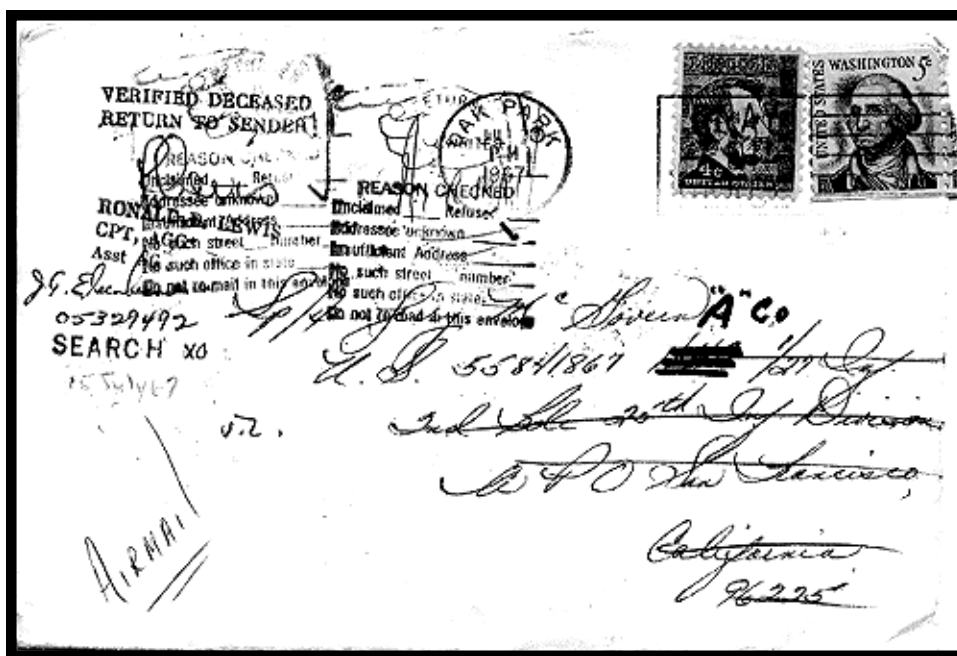 VERIFIED DECEASED
RETURN TO SENDER
REASON CHECKED
Unclaimed Refused
Addressee unknown
Insufficient Address
No such street number
No such office in state
Do not remail in this envelope
RONALD D. LEWIS
CPT, AGC
Asst AG
J.G.
05329492
SEARCH XO
15 July 67
J.Z.
AIRMAIL
OAK PARK
PM
1967
REASON CHECKED
Unclaimed Refused
Addressee unknown
Insufficient Address
No such street number
No such office in state
Do not remail in this envelope
4¢
UNITED STATES
WASHINGTON 5¢
UNITED STATES
Sp/4 Mc Govern "A" Co
U.S. 55841867 1/27 Inf
2nd Bde 25th Inf Division
A P O San Francisco,
California
96225